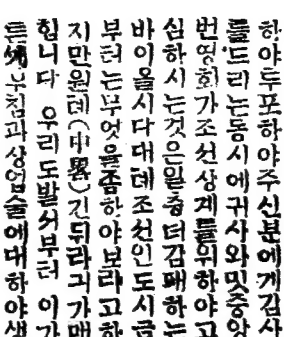 하야두포하야주신분에게감사
를드리는동시에귀사와밋중앙
번영회가조선상계를위하야고
심하시는것은일층더감패하는
바이올시다대테조선인도시금
부터는무엇을좀하야보라고하
지만원데(中畧)긴뒤라긔가매
힙니다 우리도발서부터 이가
튼 부침과상업술에대하야생